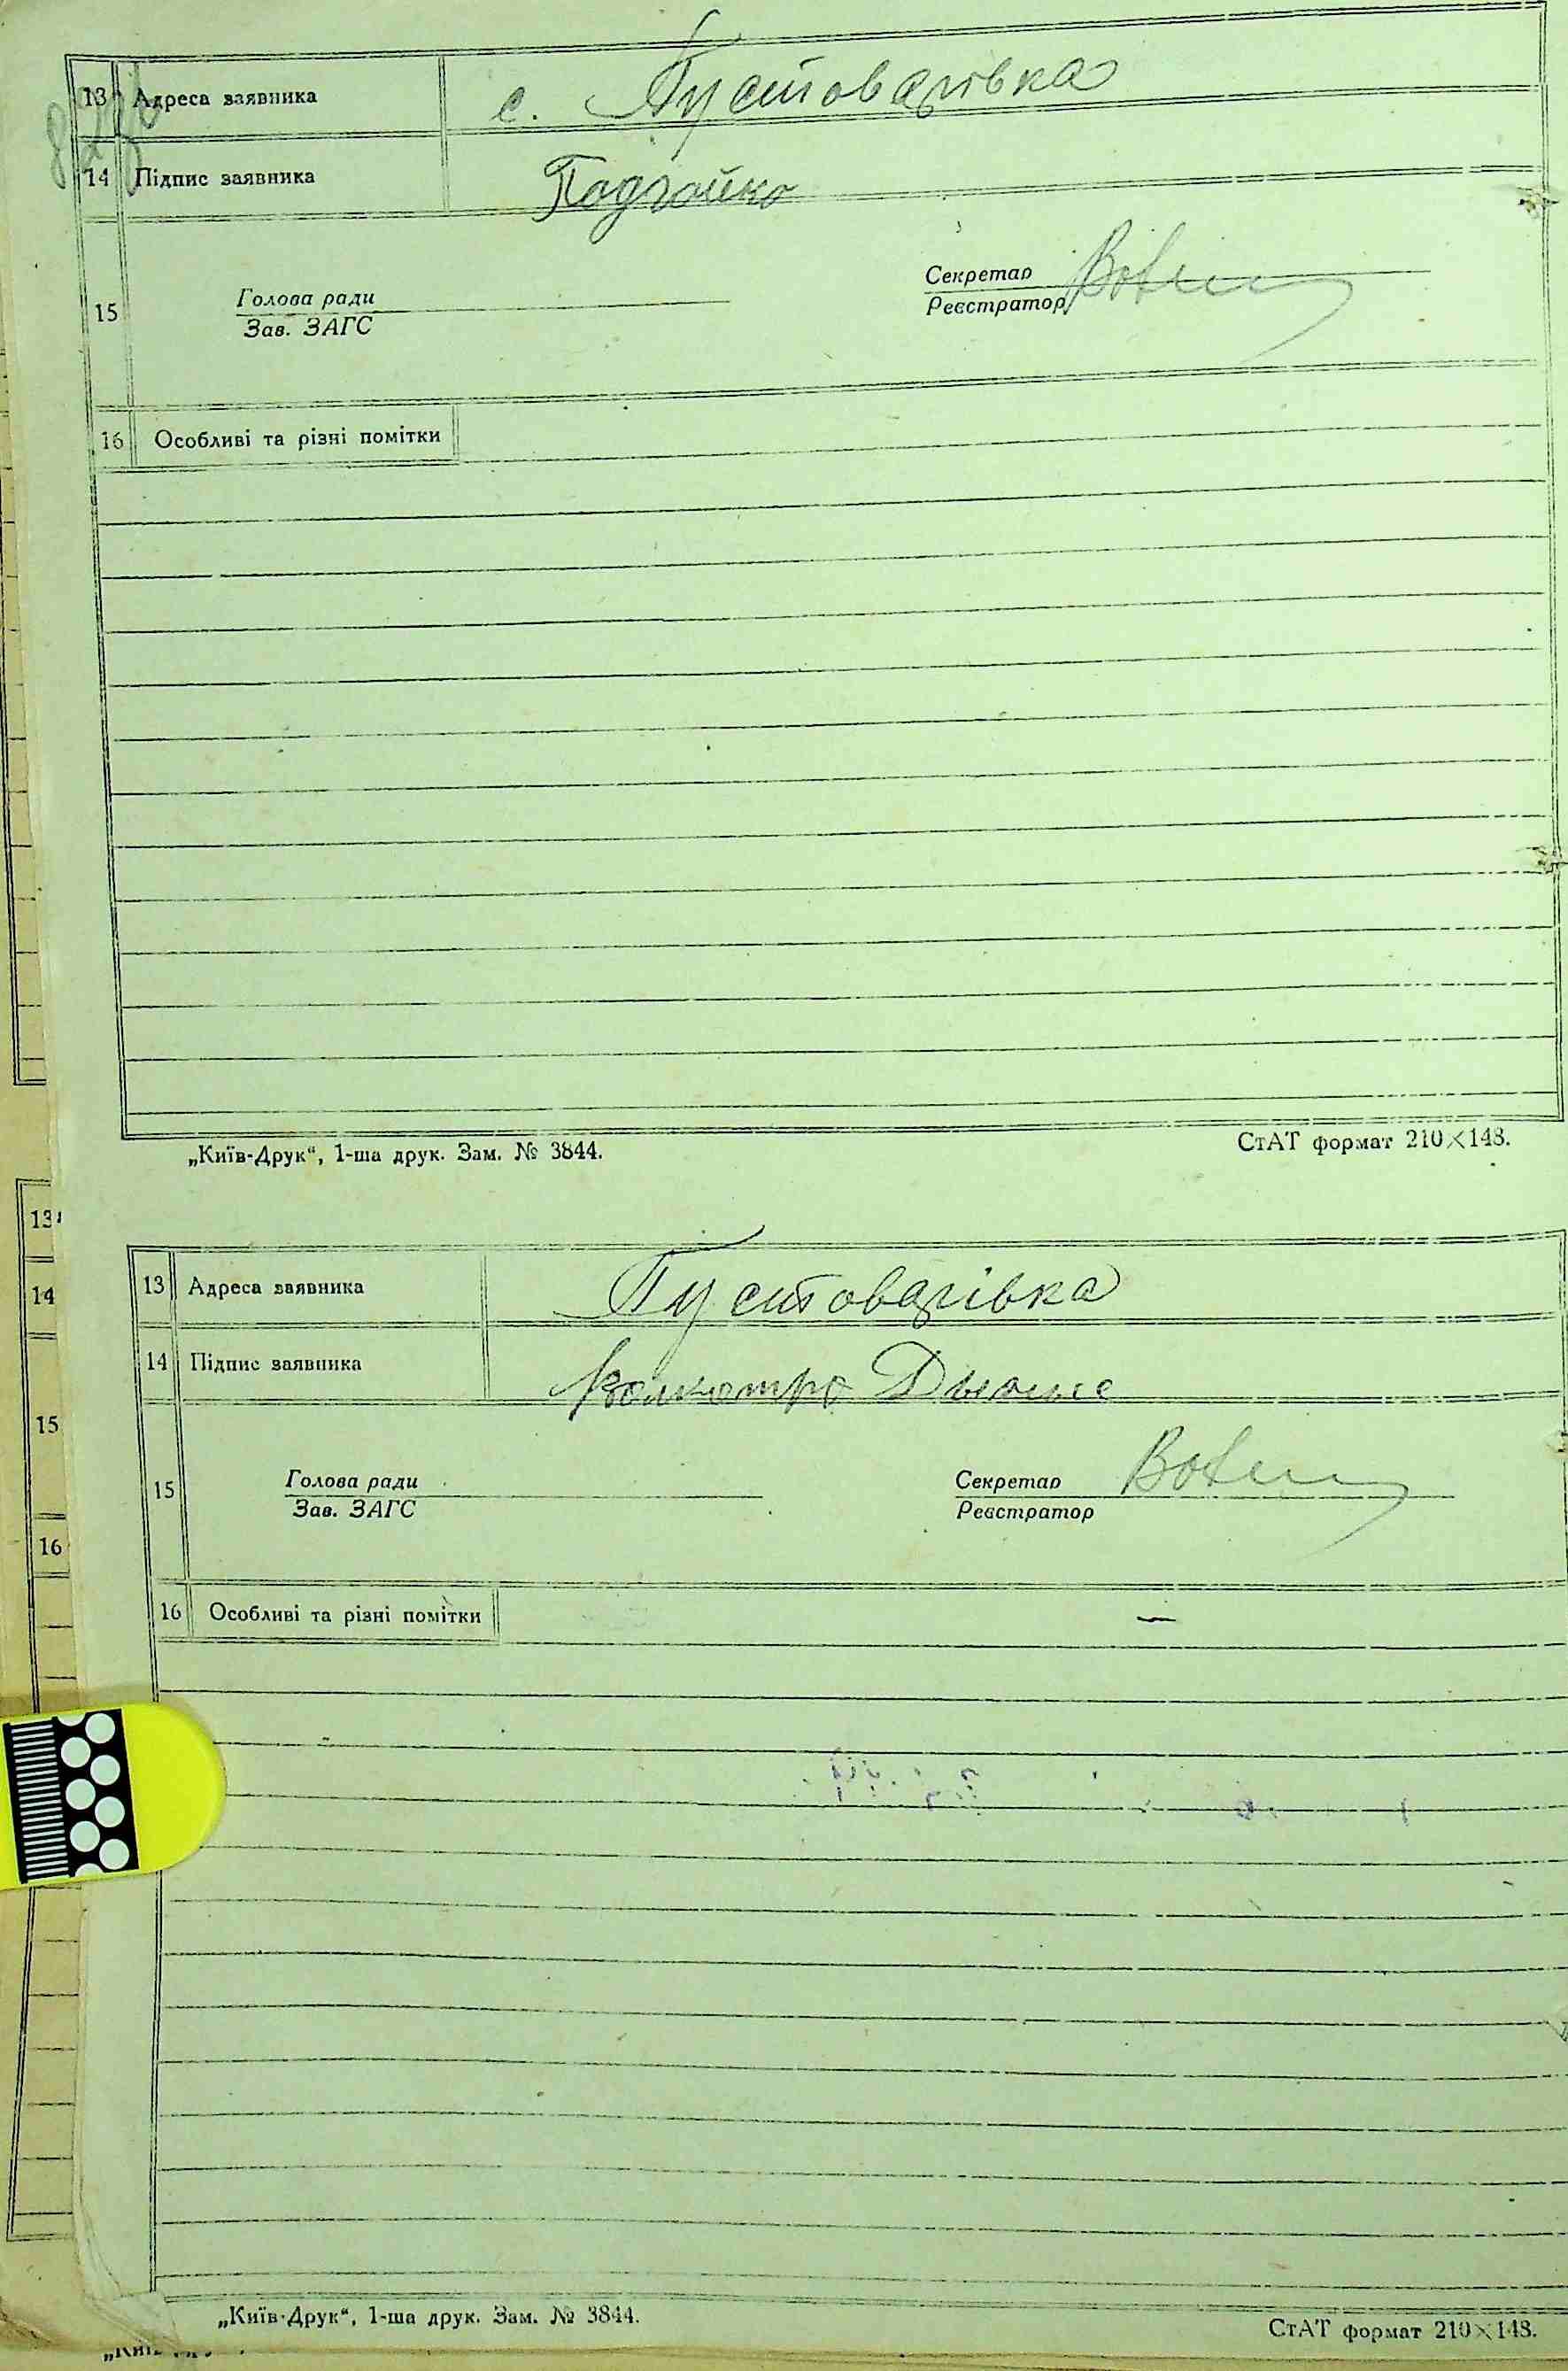 13 Адреса заявника с. Пустоварівка
14 Підпис заявника Подгойко
Секретар
Голова ради
15 Реєстратор
Зав. ЗАГС
16 Особливі та різні помітки
„Київ-Друк“, 1-ша друк. Зам. № 3844. СтАТ формат 210×148.
13
14
15
16
13 Адреса заявника Пустоварівка
14 Підпис заявника
15 Голова ради Секретар
Зав. ЗАГС Реєстратор
16 Особливі та різні помітки —
„Київ-Друк“, 1-ша друк. Зам. № 3844.
СтАТ формат 210×148.